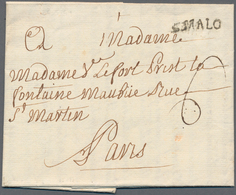 S.MALO
A Madame
Madame Ve Le fort Prist la
fontaine Maubue Rue
St Martin
Paris